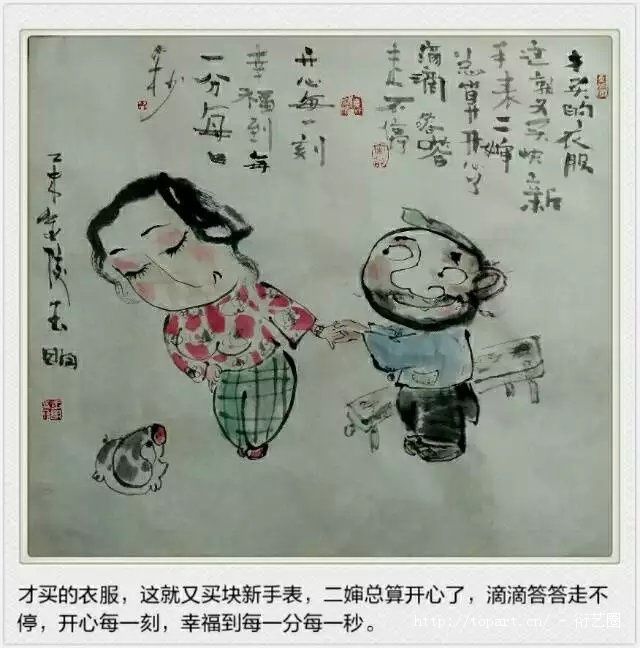 才买的衣服
这就又买块新
手表二婶
总算开心了
滴滴答答
走不停
开心每一刻
幸福到每
一分每一
秒
才买的衣服，这就又买块新手表，二婶总算开心了，滴滴答答走不
停，开心每一刻，幸福到每一分每一秒。
http://topart.cn/ - 衍艺圈